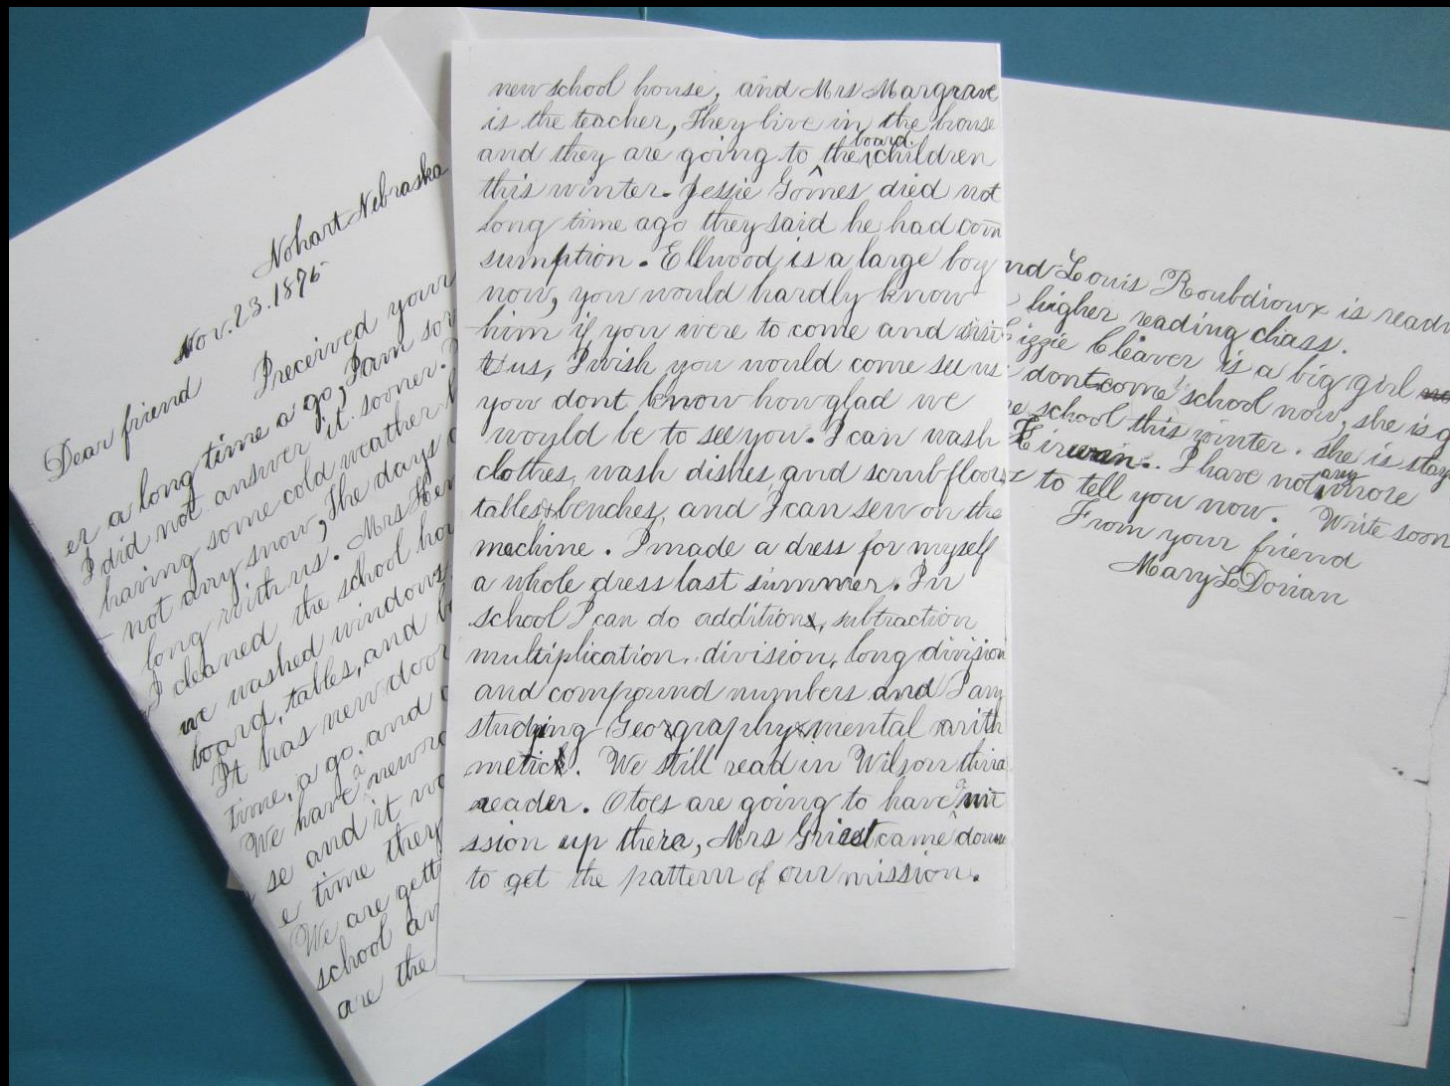 Nohart Nebraska
Nov. 23. 1875
Dear friend I received your
er a long time a go, I am sor
I did not answer it sooner.
having some cold weather
not any snow, The days
long with us. Mrs
I cleaned the school
we washed windows
board, tables, and
It has new door
time, a go, and
We have a new
se and it
e time they
We are gett
school an
are the
new school house, and Mrs Margrave
is the teacher, They live in the house
and they are going to the board children
this winter. Jessie Gomes died not
long time ago they said he had con
sumption. Ellwood is a large boy
now, you would hardly know
him if you were to come and visit
us, I wish you would come see us
you dont know how glad we
would be to see you. I can wash
clothes, wash dishes, and scrub floors,
tables & benches, and I can sew on the
machine. I made a dress for myself
a whole dress last summer. In
school I can do addition, subtraction
multiplication, division, long division
and compound numbers and I am
studying Geography & mental arith
metic. We still read in Wilson third
reader. Otoes are going to have mi
ssion up there, Mrs Griest came down
to get the pattern of our mission.
nd Louis Roubdioux is readi
higher reading class.
izzie Cleaver is a big girl
dont come school now, she is g
e school this winter. she is stay
Kirwin. I have not any more
to tell you now. Write soon
From your friend
Mary LeDorian